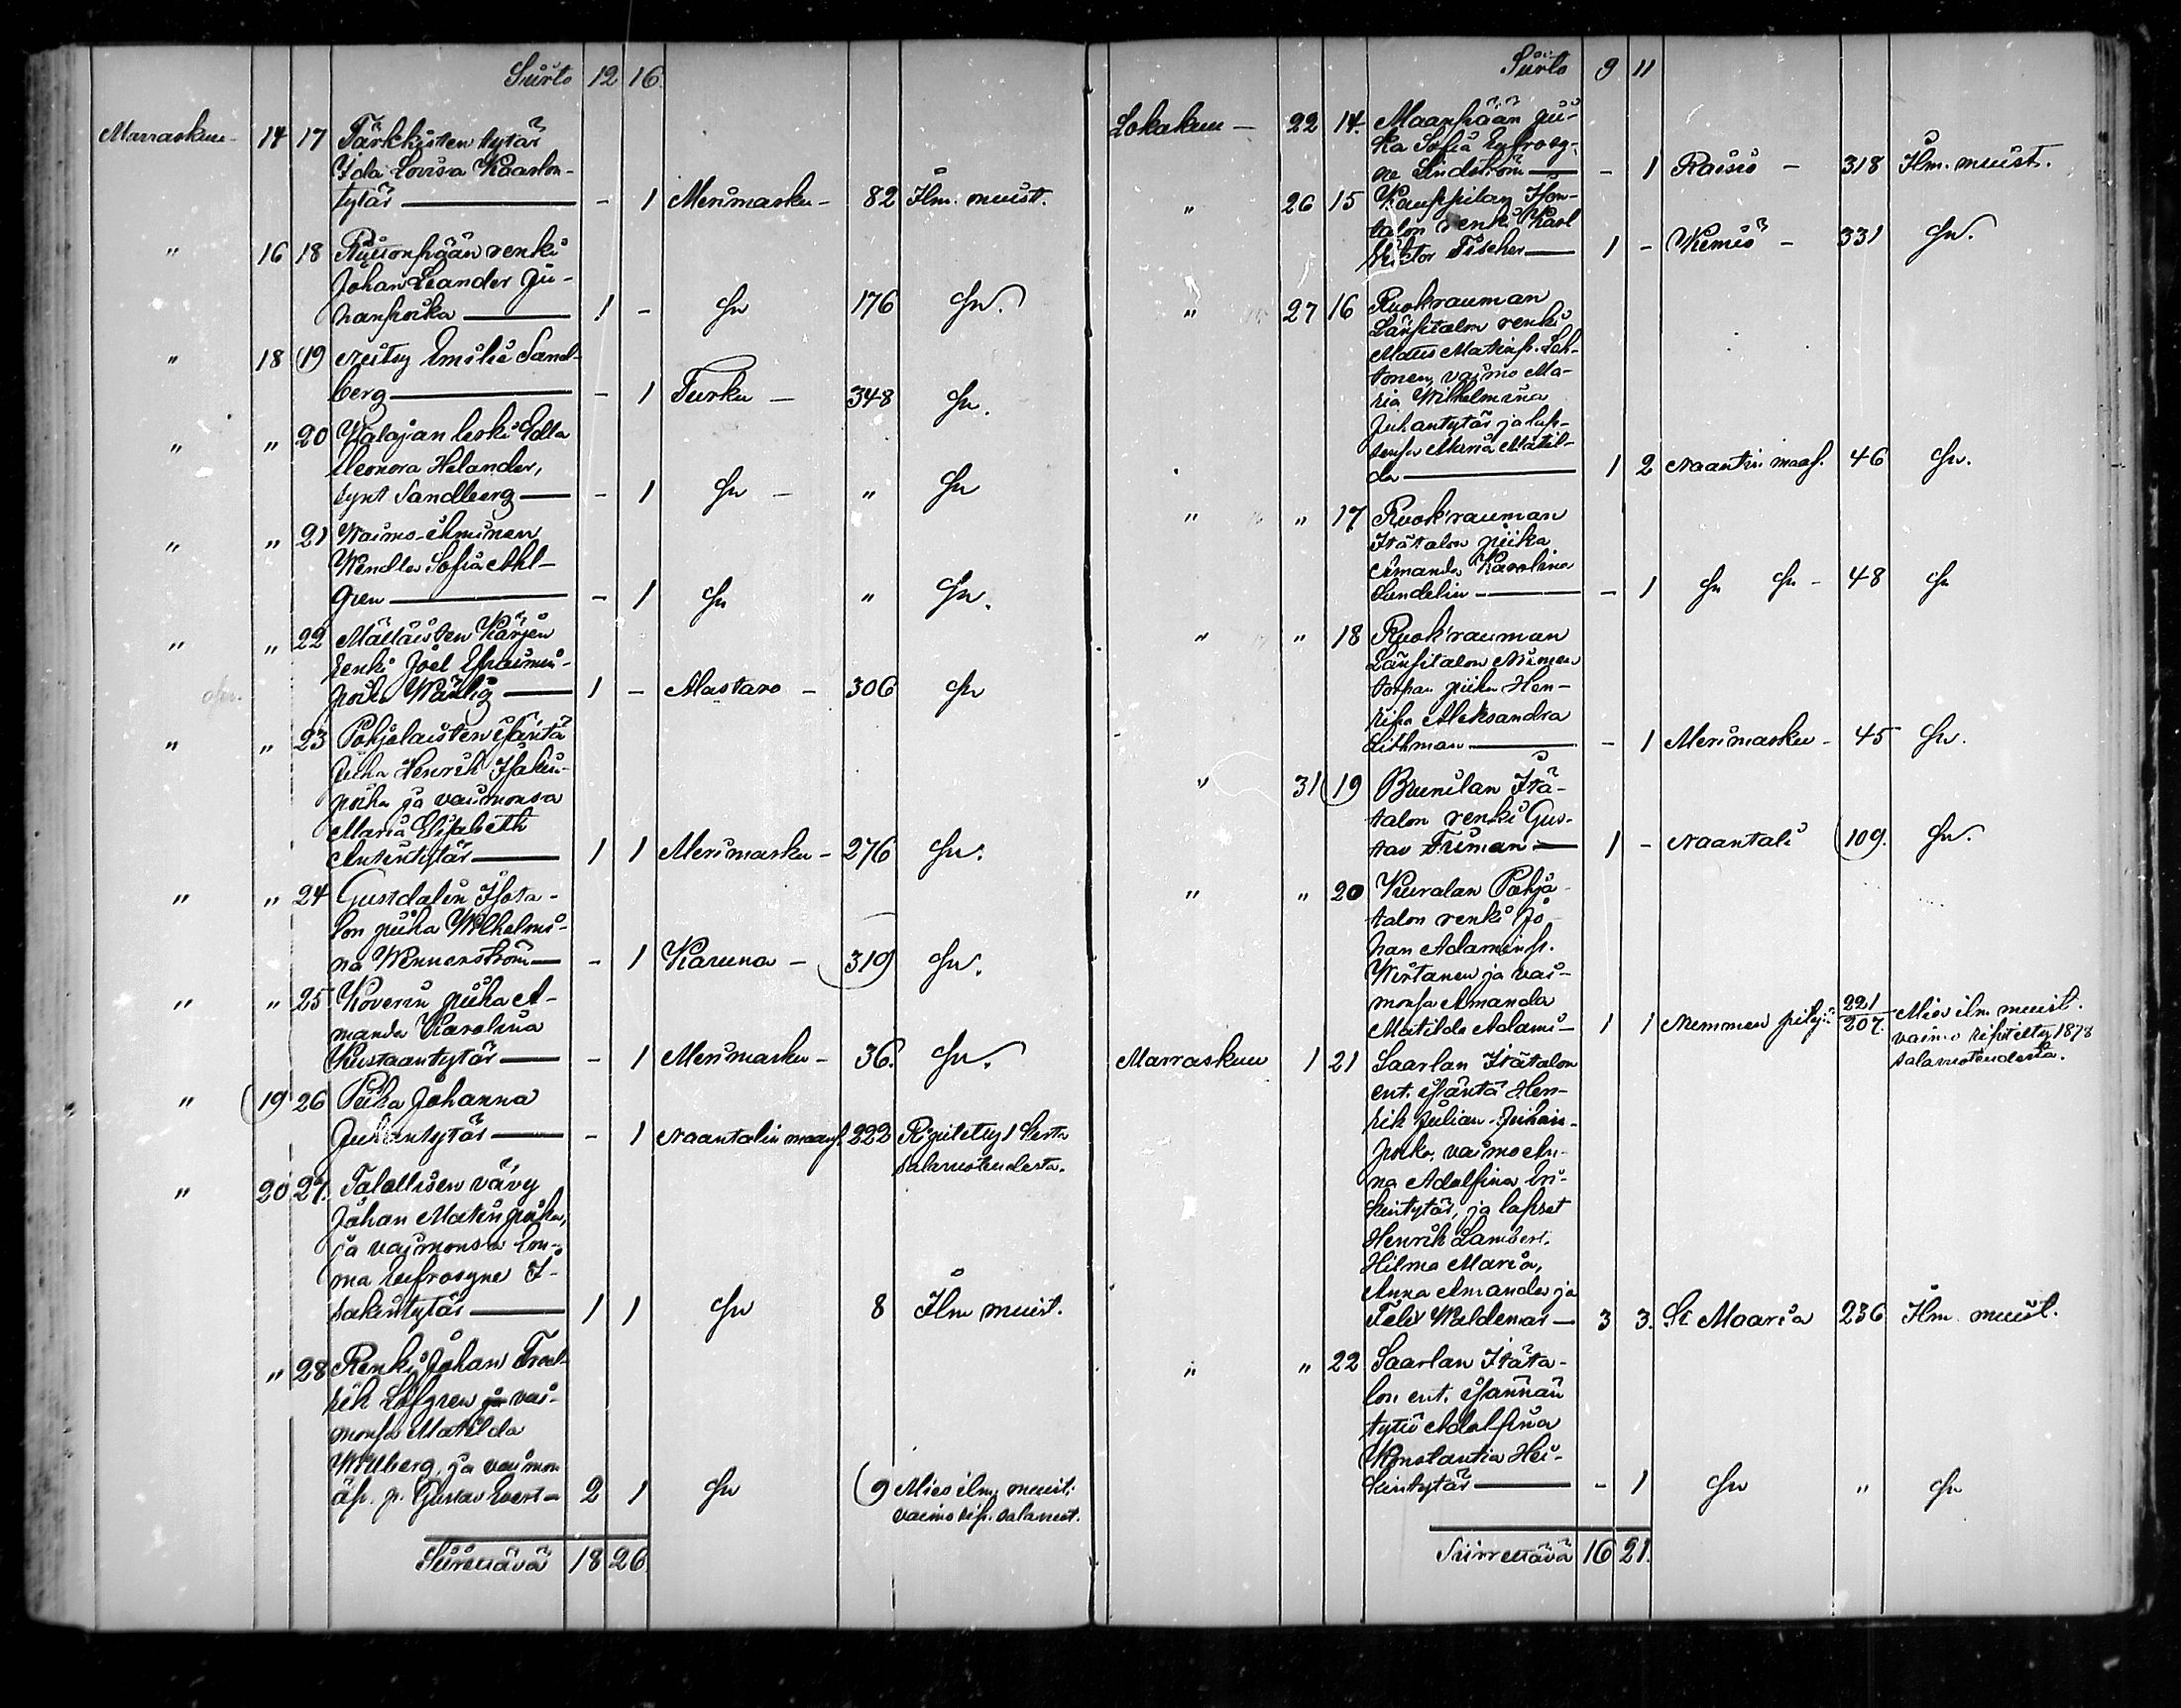 Siirto 12 16.
Marraskuu 14 17 Tärkkisten tytär
Ida Lovisa Kaarlon-
tytär — - 1 Merimasku - 82 Ilm. muist.
" 16 18 renki
Johan Leander Ju-
hanpoika — 1 - Sn 176 Sn.
" 18 19 Neitsy Emilie Sand-
berg — - 1 Turku - 348 Sn.
" " 20 Walajan leski Edla
Eleonora Helander,
synt Sandberg — - 1 Sn - " Sn
" " 21 Waimo-ihminen
Wendla Sofia Ahl-
gren — - 1 Sn " Sn.
" " 22 Mälläisten Kärjen
renki Joel Efraimin-
poika — 1 - Alastaro - 306 Sn
" " 23 Pohjelaisten isäntä
Juha Henrik Isakin-
poika ja vaimonsa
Maria Elisabeth
Antintytär — 1 1 Merimasku - 276 Sn.
" " 24 Gustdalin Isota-
lon piika Wilhelmi-
na Wennerström — - 1 Karuna - 319 Sn.
" " 25 Koverin piika A-
manda Karolina
Kustaantytär — - 1 Merimasku - 36. Sn.
" 19 26 Piika Johanna
Juhantytär — - 1 Naantalin maas. 222 Ripitetty 1 kerta
salamoteudesta.
" 20 27. Talollisen vävy
Johan Matinpoika,
ja vaimonsa Em-
ma Eufrosyne I-
sakintytär — 1 1 Sn 8 Ilm muist.
" 28 Renki Johan Fred-
rik Löfgren ja vai-
monsa Matilda
Willberg, ja vaimon
äp. p. Gustav Evert - 2 1 Sn 9 Mies ilm. muist.
vaimo rip. salavuot.
Siirrettävä 18 26.
Siirto 9 11
Lokakuu - 22 14. Maanpään pii-
ka Sofia Eufrosy-
ne Lindström — - 1 Raisio - 318 Ilm. muist.
" 26 15 Kauppilan Ison-
talon renki Karl
Viktor Fischer — 1 - Kemiö - 331 Sn.
" 27 16 Ruokrauman
Länsitalon renki
Matts Matinp. Leh-
tonen, vaimo Ma-
ria Wilhelmina
Juhantytär ja lap-
sensa Maria Matil-
da — 1 2 Naantlin maas. 46 Sn.
" " 17 Ruokrauman
Itätalon piika
Amanda Karolina
Sundelin — - 1 Sn Sn - 48 Sn
" " 18 Ruokrauman
Länsitalon Niemen
torpan piika Hen-
rika Aleksandra
Lithman — - 1 Merimasku - 45 Sn.
" 31 19 Brunilan Itä-
talon renki Gus-
tav Friman — 1 - Naantali 109. Sn.
" " 20 Kuralan Pohja-
talon renki Jo-
han Adaminp.
Wirtanen ja vai-
monsa Amanda
Matilda Adami- 1 1 Nummen pitäjä 221/207. Mies ilm. muist.
vaimo ripitetty 1878
salavuoteudesta.
Marraskuu 1 21 Saarlan Itätalon
ent. isäntä Hen-
rik Julian Juhan-
poika, vaimo An-
na Adolfina Eri-
kintytär, ja lapset
Henrik Lambert,
Hilma Maria,
Anna Amanda ja
Felix Waldemar — 3 3. St Maaria 236 Ilm. muist.
" " 22 Saarlan Itäta-
lon ent. isännän
tytär Adolfina
Konstantia Hei-
kintytär — - 1 Sn " Sn
Siirrettävä 16 21.